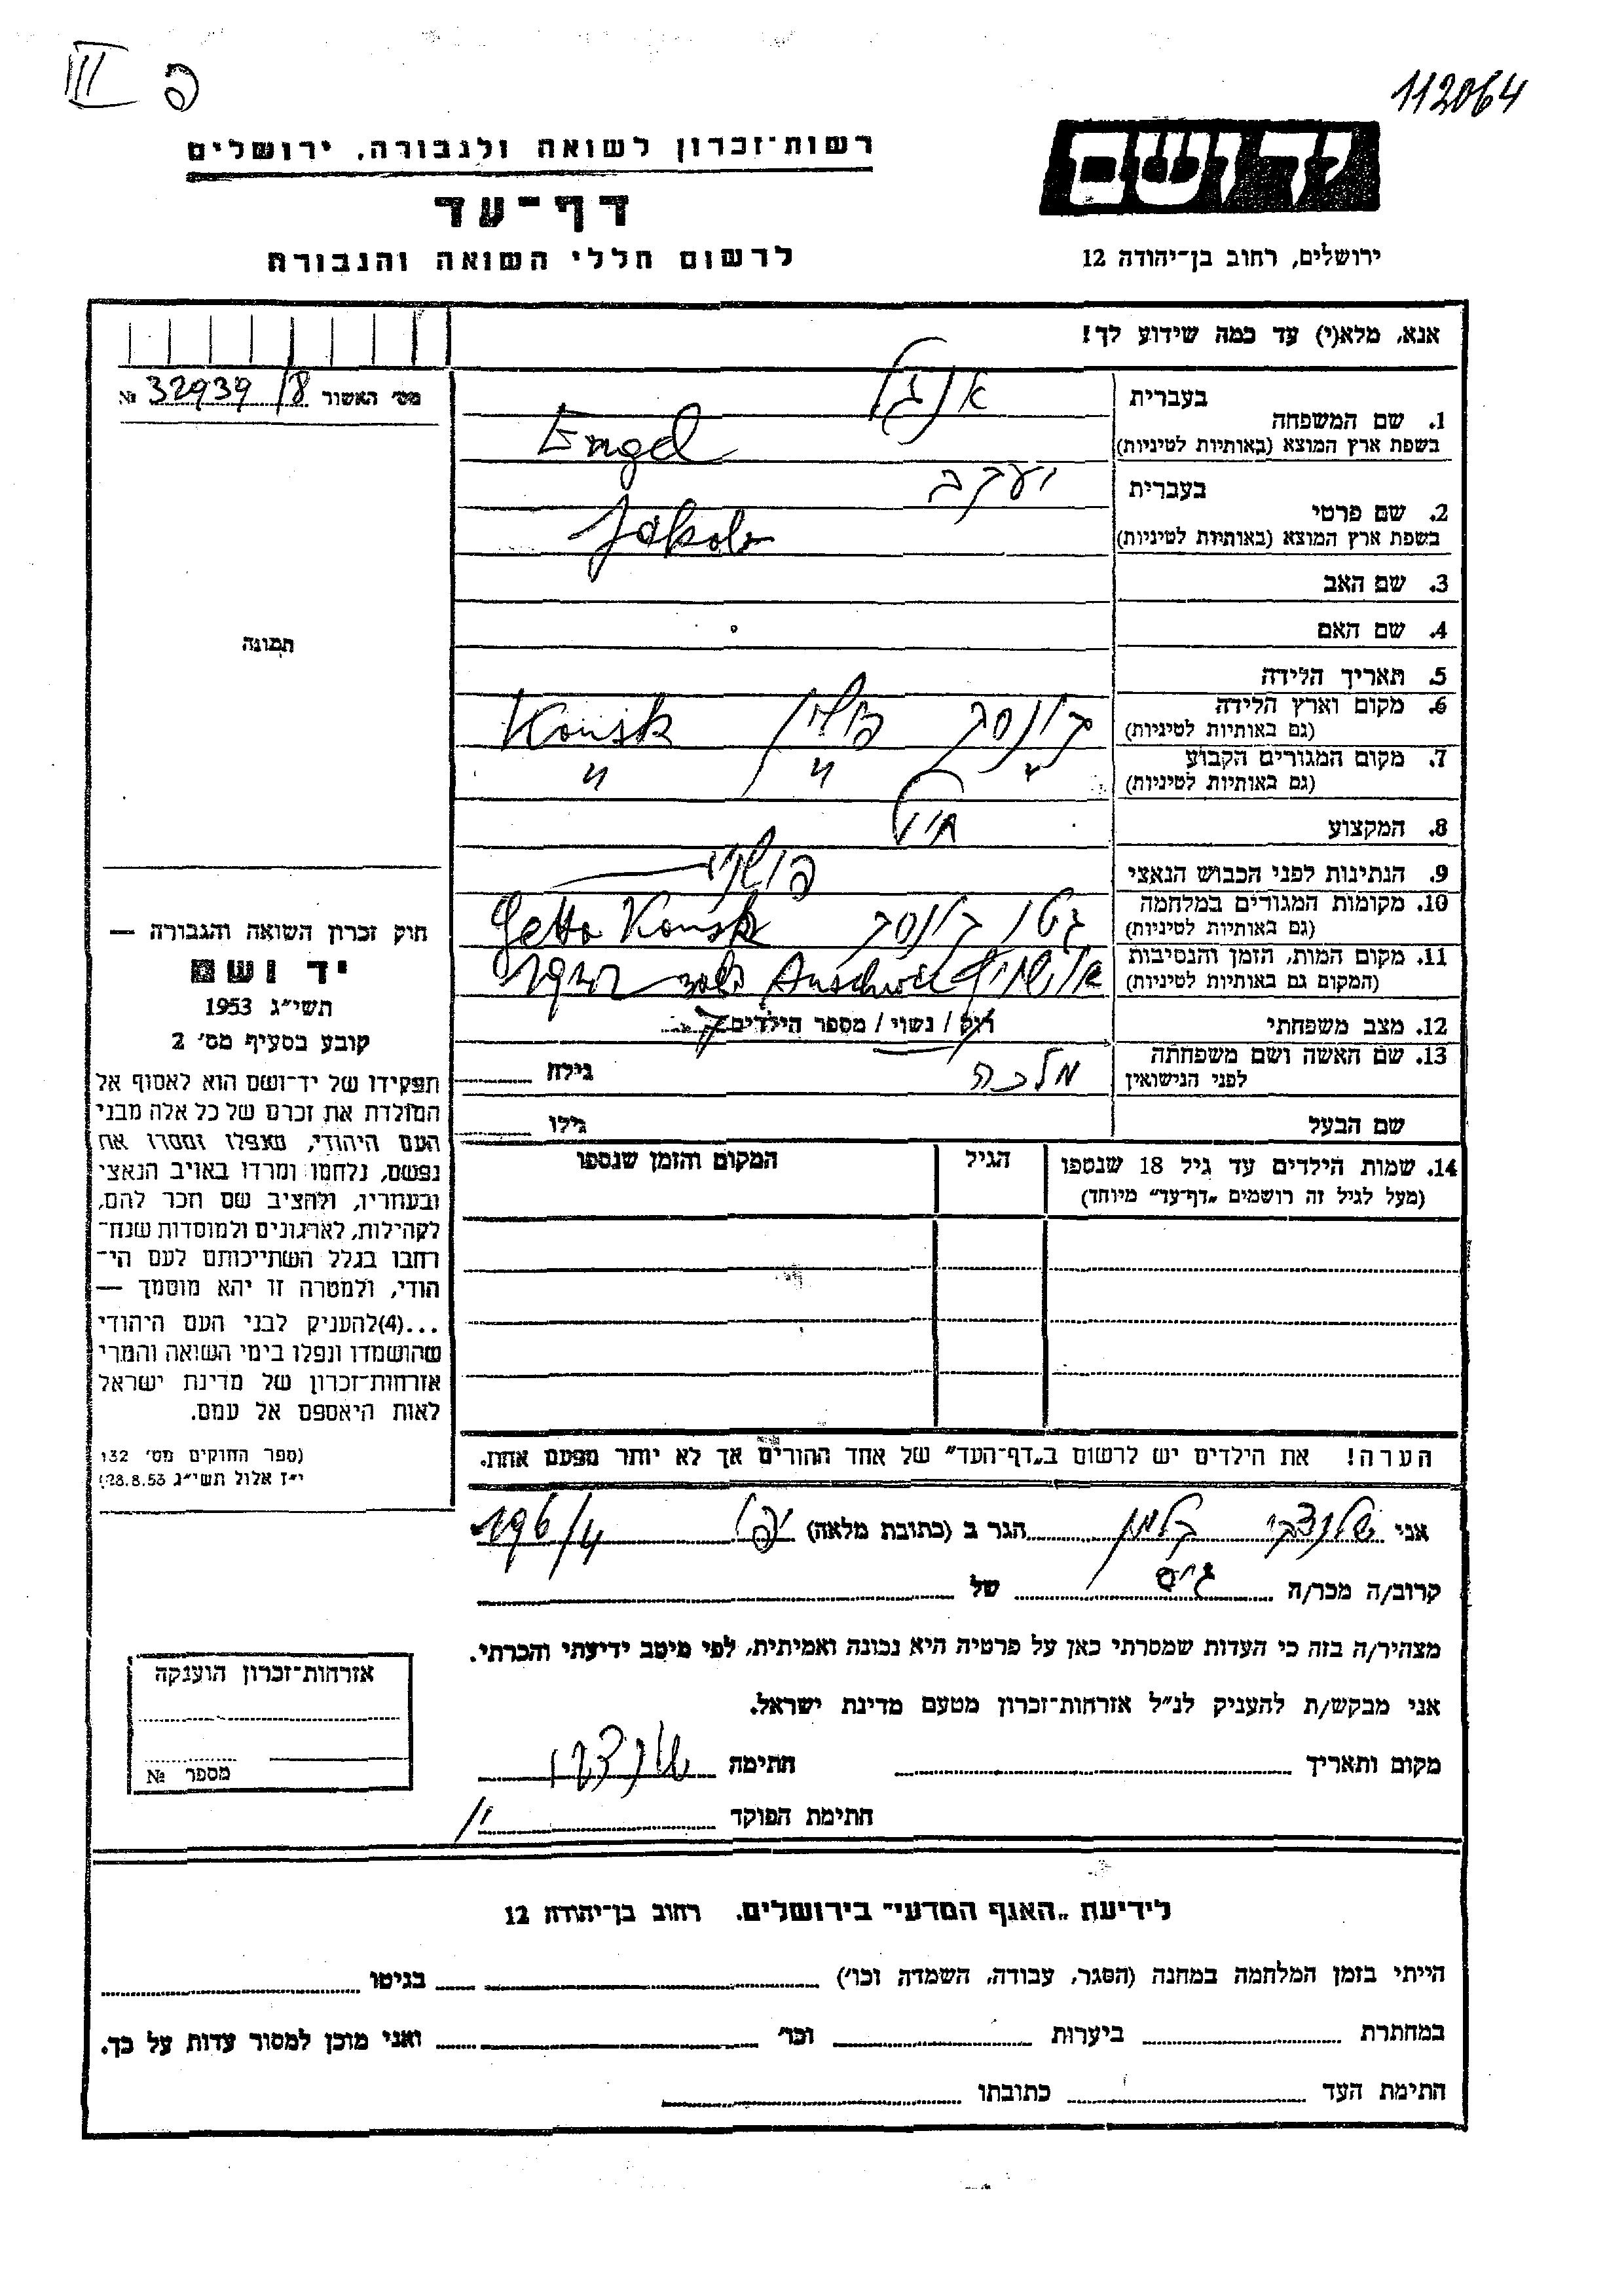 III פ
112064
יד ושם
ירושלים, רחוב בן־יהודה 12
רשות־זכרון לשואה ולגבורה, ירושלים
דף־עד
לרשום חללי השואה והגבורה
אנא, מלא(י) עד כמה שידוע לך!
מס׳ האשור 32939/8 №
בעברית אנגל
1. שם המשפחה
בשפת ארץ המוצא (באותיות לטיניות) Engel
בעברית יעקב
2. שם פרטי
בשפת ארץ המוצא (באותיות לטיניות) Jakob
3. שם האב
4. שם האם
5. תאריך הלידה
6. מקום וארץ הלידה קונסק פולין Konsk
(גם באותיות לטיניות)
7. מקום המגורים הקבוע " " "
(גם באותיות לטיניות)
8. המקצוע חייט
9. הנתינות לפני הכבוש הנאצי פולני
10. מקומות המגורים במלחמה גטו קונסק Getto Konsk
(גם באותיות לטיניות)
11. מקום המות, הזמן והנסיבות
(המקום גם באותיות לטיניות)
12. מצב משפחתי רוק / נשוי / מספר הילדים 7
13. שם האשה ושם משפחתה מלכה גילה
לפני הנישואין
שם הבעל גילו
14. שמות הילדים עד גיל 18 שנספו הגיל המקום והזמן שנספו
(מעל לגיל זה רושמים „דף־עד״ מיוחד)
הערה! את הילדים יש לרשום ב„דף־העד״ של אחד ההורים אך לא יותר מפעם אחת.
תמונה
חוק זכרון השואה והגבורה —
יד ושם
תשי״ג 1953
קובע בסעיף מס׳ 2
תפקידו של יד־ושם הוא לאסוף אל
המולדת את זכרם של כל אלה מבני
העם היהודי, שנפלו ומסרו את
נפשם, נלחמו ומרדו באויב הנאצי
ובעוזריו, ולהציב שם וזכר להם,
לקהילות, לארגונים ולמוסדות שנח־
רבו בגלל השתייכותם לעם הי־
הודי, ולמטרה זו יהא מוסמך —
...(4)להעניק לבני העם היהודי
שהושמדו ונפלו בימי השואה והמרי
אזרחות־זכרון של מדינת ישראל
לאות היאספם אל עמם.
(ספר החוקים מס׳ 132
י״ז אלול תשי״ג 28.8.53)
אני קלמן הגר ב (כתובת מלאה) יפו 196/4
קרוב/ה מכר/ה גיס של
מצהיר/ה בזה כי העדות שמסרתי כאן על פרטיה היא נכונה ואמיתית, לפי מיטב ידיעתי והכרתי.
אני מבקש/ת להעניק לנ״ל אזרחות־זכרון מטעם מדינת ישראל.
מקום ותאריך חתימה
חתימת הפוקד
אזרחות־זכרון הוענקה
מספר №
לידיעת „האגף המדעי״ בירושלים. רחוב בן־יהודה 12
הייתי בזמן המלחמה במחנה (הסגר, עבודה, השמדה וכו׳) בגיטו
במחתרת ביערות וכו׳ ואני מוכן למסור עדות על כך.
חתימת העד כתובתו